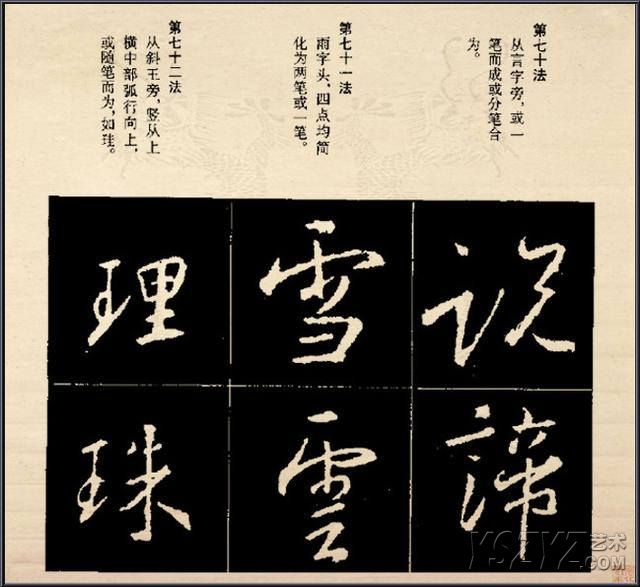 第七十法
从言字旁，或一
笔而成或分笔合
为。
第七十一法
雨字头，四点均简
化为两笔或一笔。
第七十二法
从斜王旁，竖从上
横中部弧行向上，
或随笔而为，如珪。
説
諦
雪
雲
理
珠
YSZYZ艺术
.COM